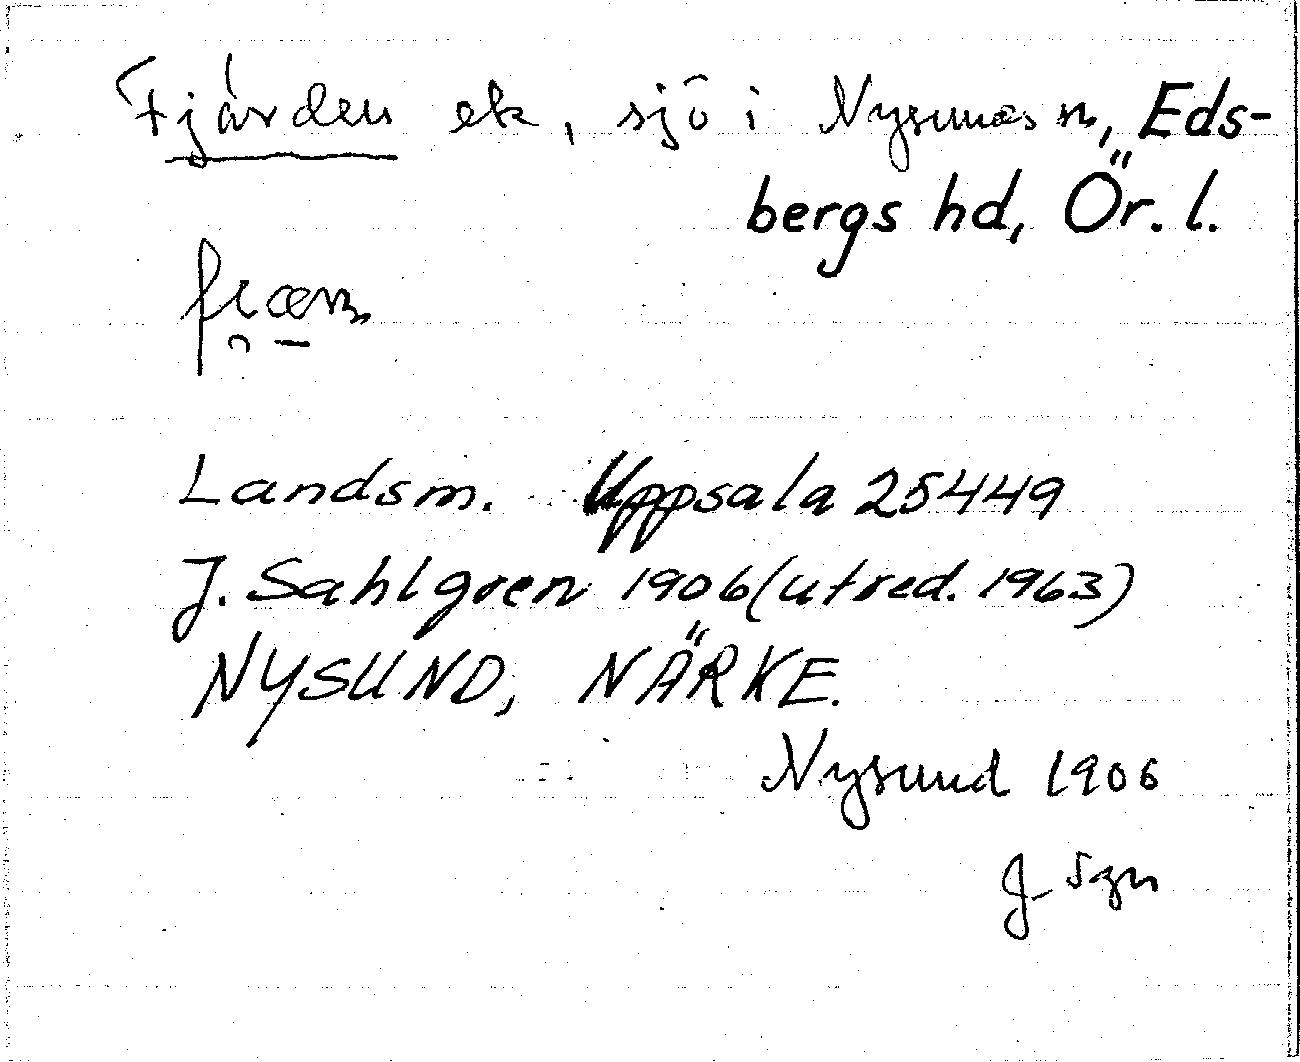 Fjärden ek, sjö i Nysunds sn, Eds-
bergs hd, Ör. l.
Landsm. Uppsala 25449
J. Sahlgren 1906 (utred. 1963)
NYSUND, NÄRKE.
Nysund 1906
J Sgn